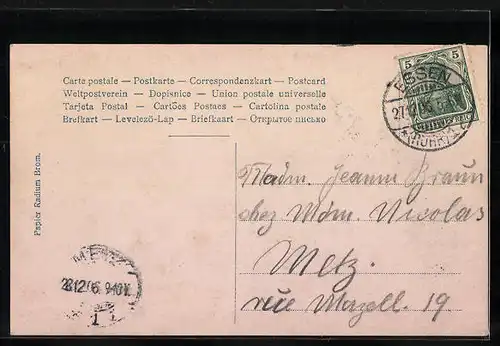 Carte postale — Postkarte — Correspondenzkart — Postcard
Weltpostverein — Dopisnice — Union postale universelle
Tarjeta Postal — Cartões Postaes — Cartolina postale
Brefkart — Levelező-Lap — Briefkaart — Открытое письмо
5 5
ESSEN
(RUHR)
Papier Radium Brom.
Madm. Jeanne Braun
chez Mdm. Nicolas
Metz.
rue Mazell. 19
METZ
28.12.06
1